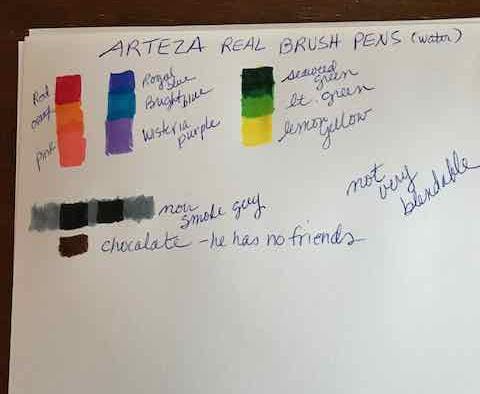 ARTEZA REAL BRUSH PENS (water)
Red
orange
pink
Royal blue
Bright blue
Wisteria purple
seaweed green
lt. green
lemon yellow
not very blendable
noir
smoke grey
chocolate - he has no friends